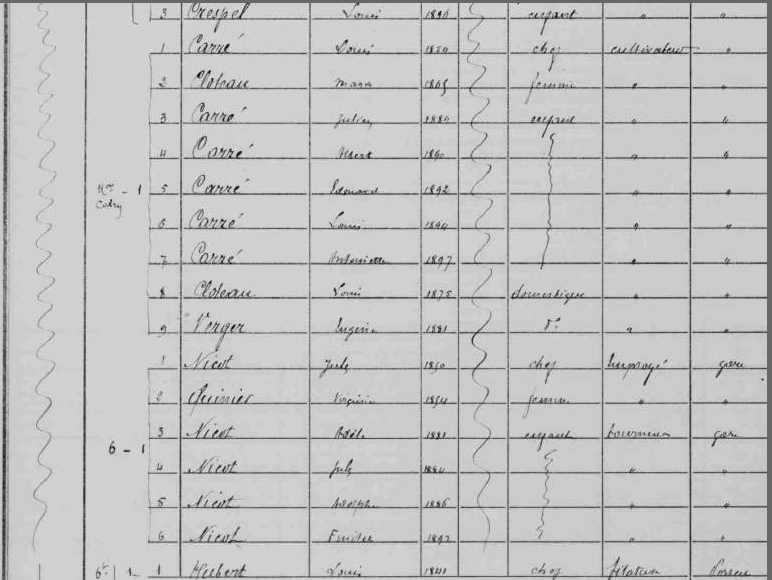 3 Crespel Louis 1894 enfant " "
1 Carré Louis 1850 chef cultivateur "
2 Cloteau Marie 1865 femme " "
3 Carré Julien 1889 enfant " "
4 Carré Albert 1890 " "
5 Carré Edouard 1892 " "
6 Carré Louis 1894 " "
7 Carré Antoinette 1897 " "
8 Cloteau Louis 1875 domestique " "
9 Verger Eugénie 1881 do "
1 Nicot Jules 1850 chef Employé gare
2 Virginie 1854 femme " "
6 - 1 3 Nicot 1881 enfant gare
4 Nicot Jules 1884 " "
5 Nicot Adolphe 1886 " "
6 Nicot 1892 " "
1 Hubert Louis 1841 chef